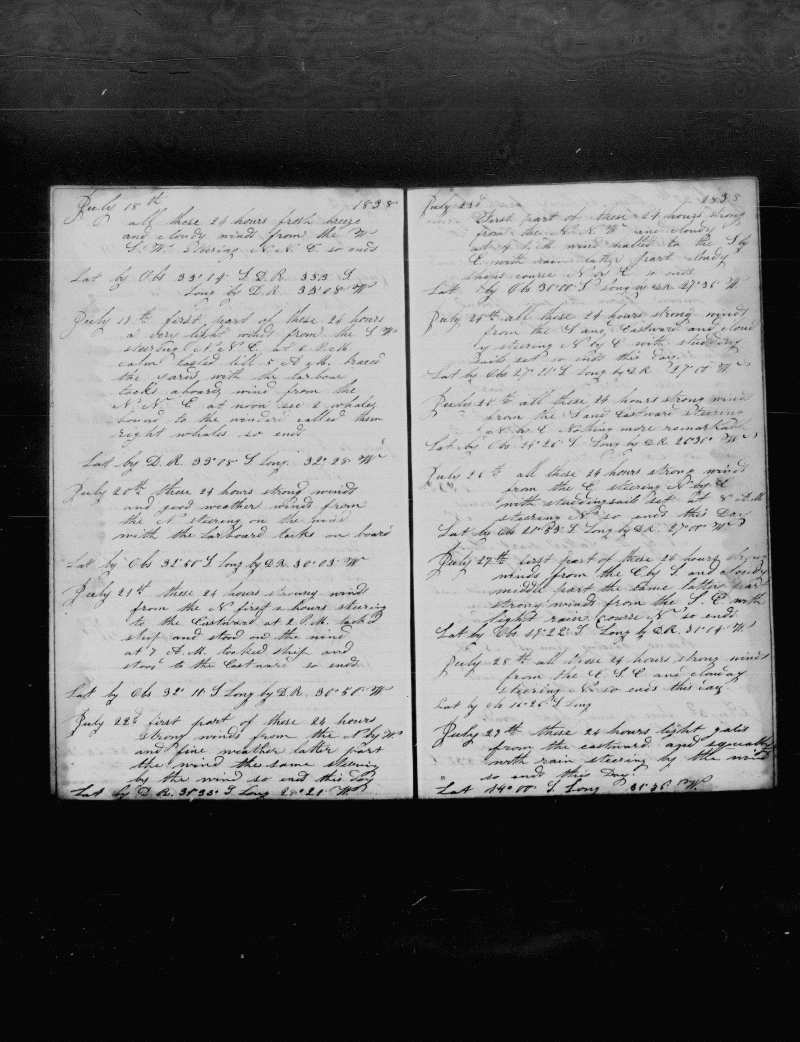 July 18th 1838
all these 24 hours fresh breeze
and cloudy winds from the W
S. W. Steering N. N. E. so ends
Lat by Obs 33°14' S D. R. S
Long by D. R. 33°08' W
July 19th first part of these 24 hours
a very light winds from the S W
steering N. N. E. at 6 P.M
calm lasted till 5 A. M. braced
the yards with the larboar
tacks aboard wind from the
N. N. E at noon see 2 whales
bound to the winderd called them
right whales so end
Lat by D. R. 33°08' S Long. 32°28' W
July 20th these 24 hours strong winds
and good weather winds from
the N steering on the wind
with the larboard tacks on board
Lat by Obs 32°50' S long by D. R. 30°03' W
July 21st these 24 hours strong winds
from the N first 2 hours steering
to the Eastward at 2 P. M. tack'd
ship and stood on the wind
at 7 A. M. tacked ship and
stood to the Eastward so ends
Lat by Obs 32°11' S Long by D. R. 30°50' W
July 22d first part of these 24 hours
strong winds from the N by W
and fine weather latter part
the wind the same steering
by the wind so end this day
Lat by D. R. S Long 28°21' W
July 23d 1838
First part of these 24 hours strong
from the N. N. W and cloudy
at wind halled to the S by
E with rain latter part cloudy
ships course N by E so ends
Lat by Obs 30°00' S long by DR 27°36' W
July 24th all these 24 hours strong winds
from the S and Eastward and cloud
y steering N by E with studding
sails set so ends this day
Lat by Obs 27°11' S Long by DR 27°00' W
July 25th all these 24 hours strong wind
from the S and Eastward steering
N by E Nothing more remarkable
Lat by Obs 24°26' S Long by D. R 26°30' W
July 26th all these 24 hours strong winds
from the E steering N by E
with studdingsails set at 8 A.M
steering N so ends this Day
Lat by Obs 21°23' S Long by D. R. 27°00' W
July 27th first part of these 24 hours strong
winds from the E by S. and cloudy
middle part the same latter part
strong winds from the S. E. with
light rain course N so ends
Lat by Obs 18°22' S Long by D. R. 31°14' W
July 28th all these 24 hours strong winds
from the E. S. E and cloudy
steering N so ends this day
Lat by Obs 16°26' S Long
July 29th these 24 hours light gales
from the eastward and squally
with rain steering by the wind
so ends this Day
Lat 14°00' S. Long 31°36' W